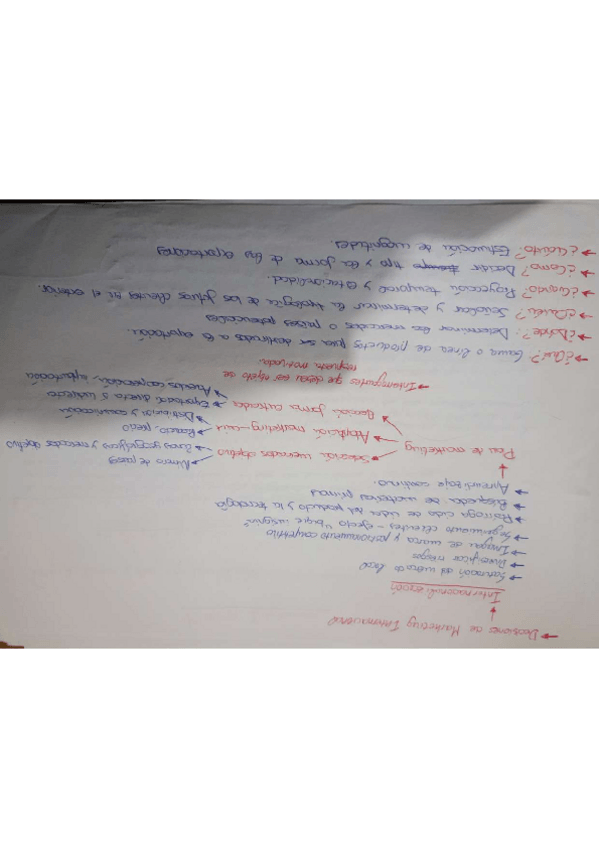 → Decisiones de Marketing Internacional
Internacionalización
→ Saturación del mercado local
→ Diversificar riesgos
→ Imagen de marca y posicionamiento competitivo
→ Seguimiento clientes - efecto "buque insignia"
→ Prórroga ciclo de vida del producto y la tecnología
→ Búsqueda de materias primas
→ Aprendizaje continuo.
Plan de marketing
→ Selección mercados objetivo
→ Número de países
→ Zonas geográficas y mercados objetivo
→ Adaptación marketing-mix
→ Producto, precio
→ Distribución y comunicación
→ Decisión forma entrada
→ Exportación directa o indirecta
→ Acuerdos cooperación, implantación
→ Interrogantes que deben ser objeto de
respuesta motivada.
→ ¿Qué? Gama o línea de productos para ser destinados a la exportación.
→ ¿Dónde?: Determinar los mercados o países potenciales
→ ¿Quién? Señalar y determinar la tipología de los futuros clientes en el exterior.
→ ¿Cuándo? Proyección temporal y estacionalidad.
→ ¿Cómo? Decidir tipo y la forma de las exportaciones
→ ¿Cuánto? Estimación de magnitudes.